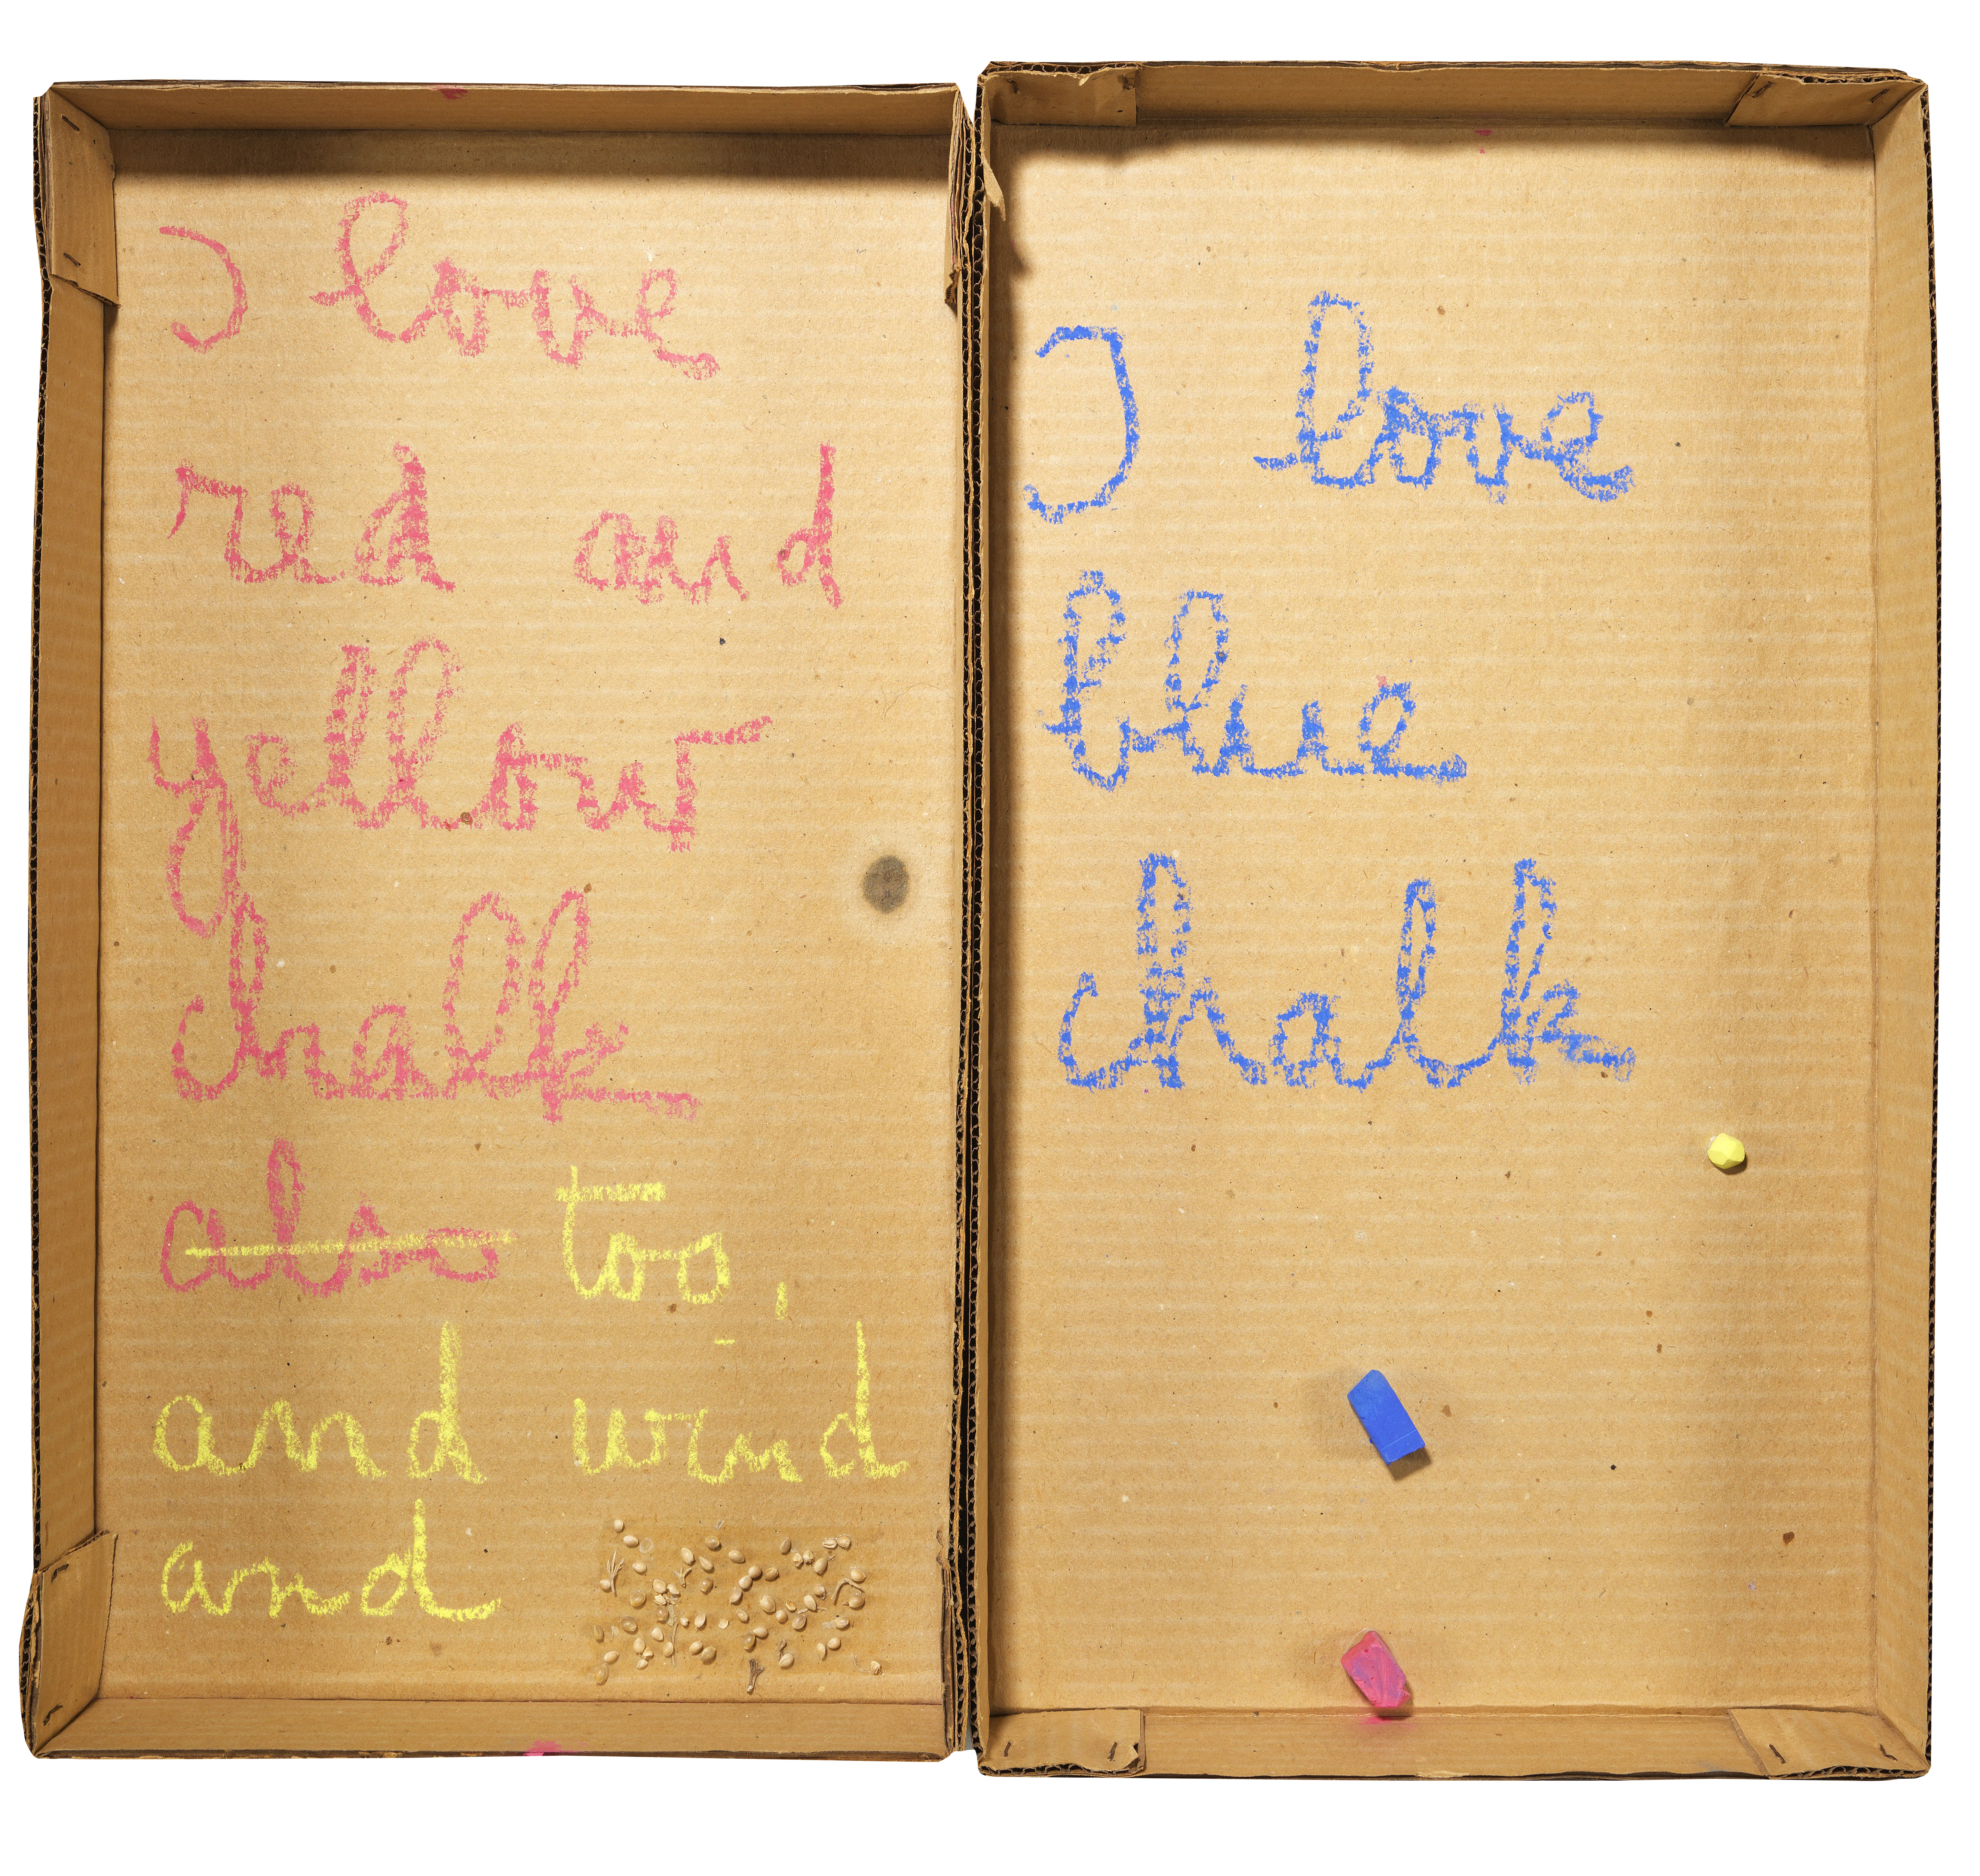 I love
red and
yellow
chalk
also too,
and wind
and
I love
blue
chalk